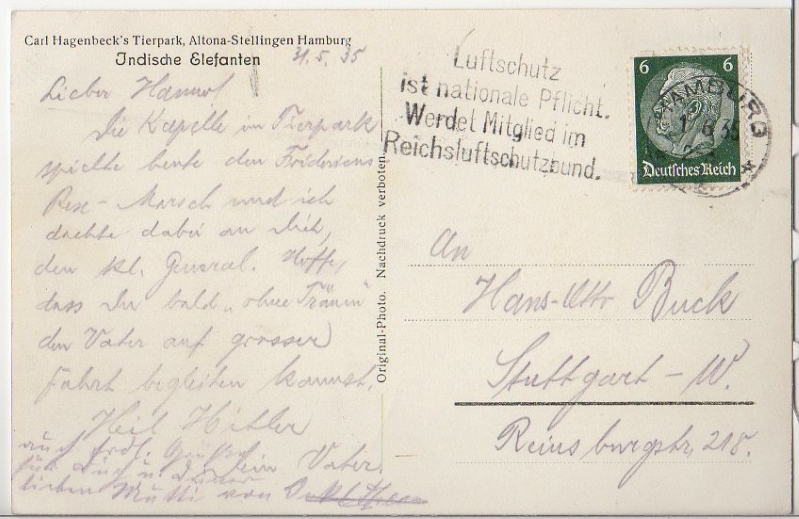 Carl Hagenbeck's Tierpark, Altona-Stellingen Hamburg
Indische Elefanten
31.5.35
Lieber Hanno!
Die Kapelle im Tierpark
spielte heute den Fridericus
Rex-Marsch und ich
dachte dabei an Dich,
den kl. General. Hoffe,
dass Du bald „ohne Tränen"
den Vater auf grosser
Fahrt begleiten kannst.
Heil Hitler
Dein Vater.
auch frdl. Grüße
für Dich u. Deine
liebe Mutti von
Original-Photo. Nachdruck verboten.
Luftschutz
ist nationale Pflicht.
Werdet Mitglied im
Reichsluftschutzbund.
6 6
Deutsches Reich
HAMBURG
1.6.35
An
Hans-Otto Buck
Stuttgart-W.
Reinsburgstr. 218.